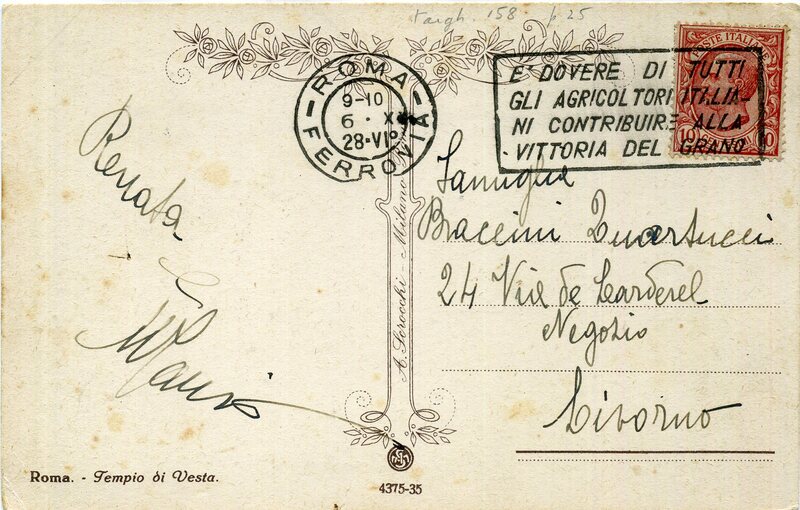 targh. 158 p. 25
ROMA
9-10
6 · X
28-VIº
FERROVIA
POSTE ITALIANE
10
E DOVERE DI TUTTI
GLI AGRICOLTORI ITALIA-
NI CONTRIBUIRE ALLA
VITTORIA DEL GRANO
Famiglia
Braccini Quartucci
24 Via de Larderel
Negozio
Livorno
Renata
e
A. Scrocchi - Milano
Roma. - Tempio di Vesta.
4375-35